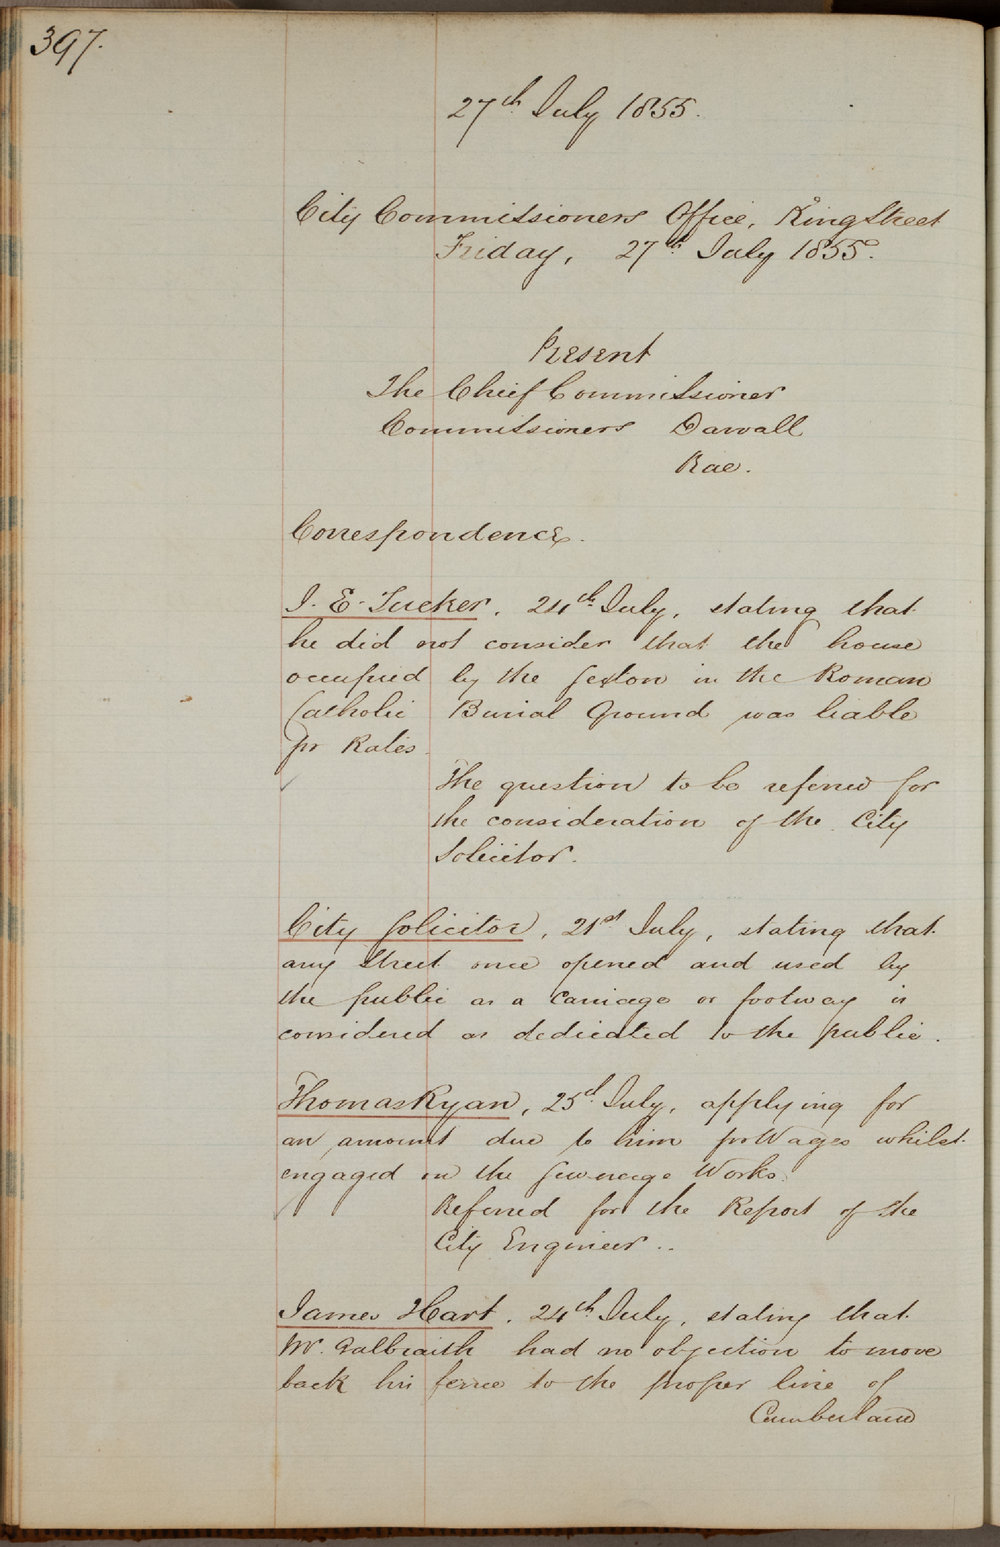 397.
27th July 1855.
City Commissioners Office, King Street
Friday, 27th July 1855.
Present
The Chief Commissioner
Commissioners Darvall
Rae.
Correspondence.
J. E. Tucker, 24th July, stating that
he did not consider that the house
occupied by the Sexton in the Roman
Catholic Burial Ground was liable
for Rates.
The question to be referred for
the consideration of the City
Solicitor.
City Solicitor, 21st July, stating that
any Street once opened and used by
the public as a Carriage or footway is
considered as dedicated to the public.
Thomas Ryan, 25th July, applying for
an amount due to him for Wages whilst
engaged on the Sewerage Works.
Referred for the Report of the
City Engineer..
James Hart, 24th July, stating that
Mr. Galbraith had no objection to move
back his fence to the proper line of
Cumberland